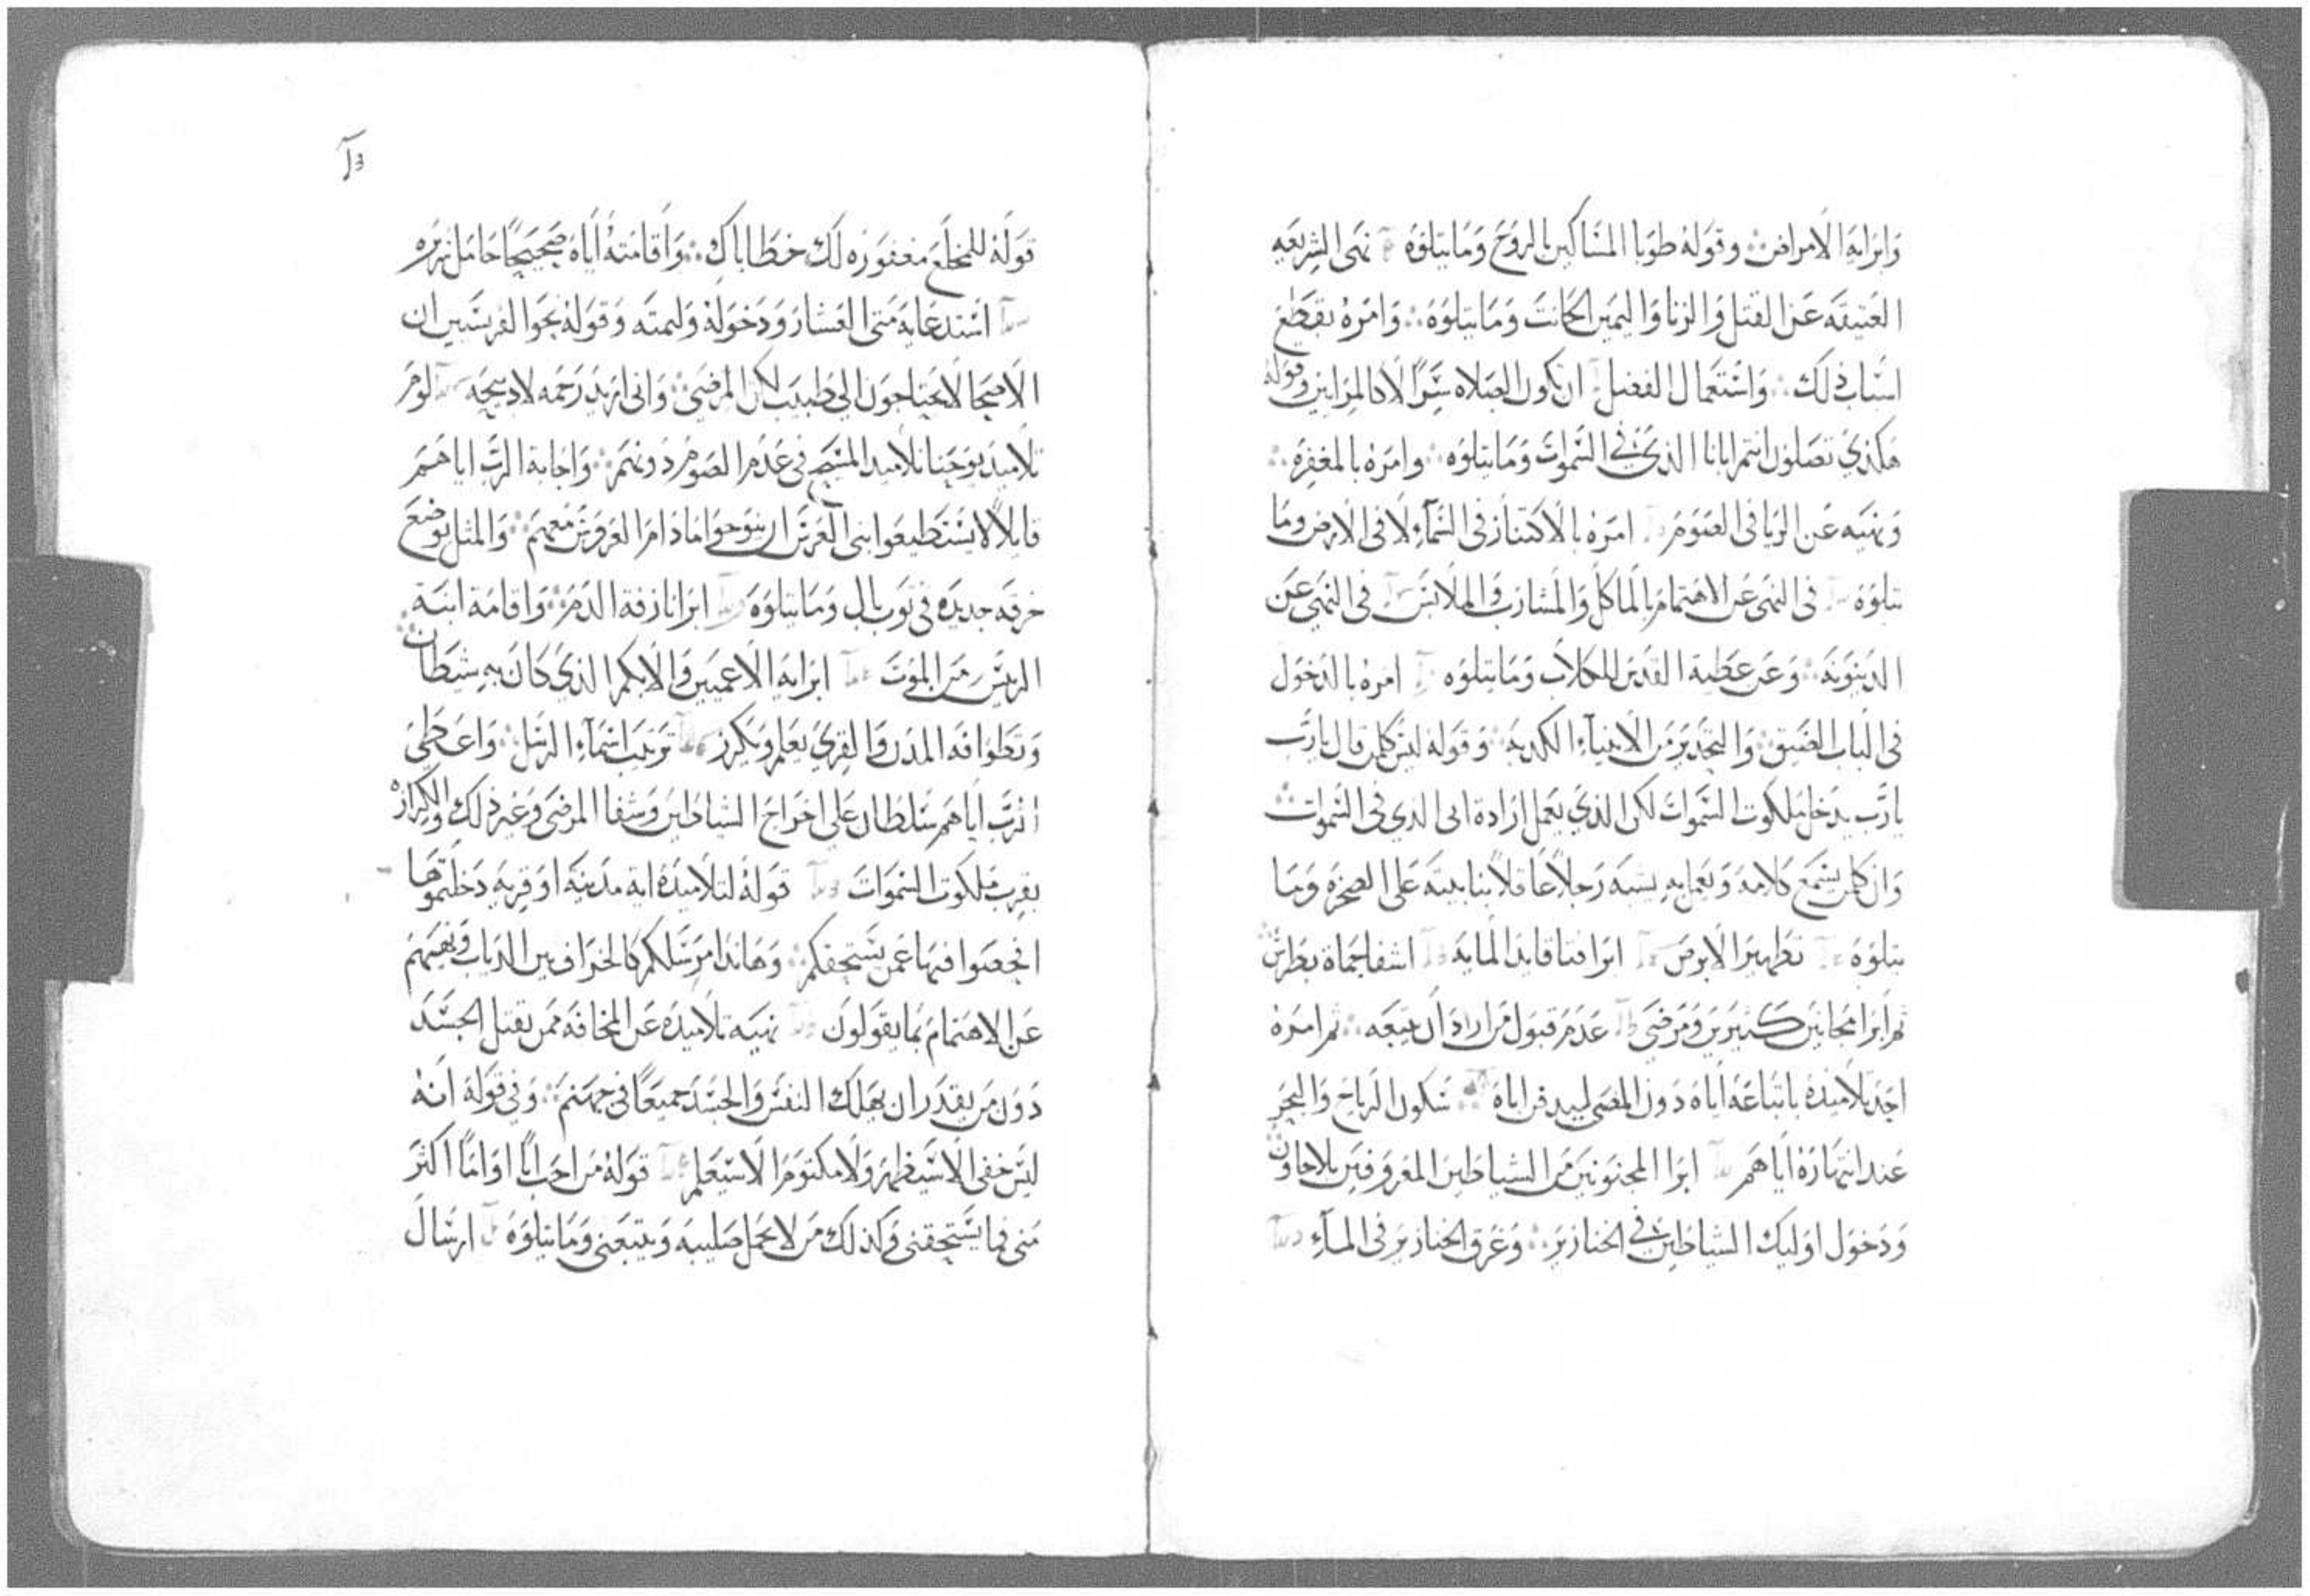 وَابرَايه الامراض ⁘ وقوله طوبا المسَاكين بالروح وَمَا يتلوه نهى الشريعه
العَتيقَه عَن القتل وَالزنا وَاليَمين الحَانث وَمَا يتلوه ⁘ وَامرَه بقطع
اسبَاب ذلك ⁘ وَاستعمَال الفضل ان تكون الصَلاه سرًا لا كالمرَايين وقوله
هَكذي تصَلون انتم ابانا الذي في السَموات وَمَا يتلوه ⁘ وامرَه بالمغفره ⁘
وَنهيَه عَن الريا فى الصَوم امرَه بالاكتناز فى السَمآء لا فى الارض وما
يتلوه فى النهى عَن الاهتمام بالماكل وَالمشارب وَالملابس فى النهى عَن
الدَينونَه ⁘ وَعَن عَطية القدس للكلاب وَمَا يتلوه امرَه بالدَخول
فى الباب الضيق ⁘ وَالتحَدير مَن الانبيآء الكدبه ⁘ وَقوله ليسَ كلمن قال يارَب
يارَب يدخل ملكوت السَموات لكن الذي يعمل ارَادة ابى الدي فى السَموات ⁘
وَان كلمن يسمَع كلامَه وَيعَمل به يشبه رَجلاً عَاقلاً بنا بيته عَلى الصَخره وَمَا
يتلوه تطهير الابرص ابرا فتا قايد المايه اشفا حماة بطرس ⁘
ثم ابرا مجانين كثيرين وَمَرضى عَدَم قبول مَن ارادَ ان يتبعَه ⁘ ثم امرَه
احَد تلاميذه باتباعَه اياه دَون المضى ليدفن اباه ⁘ سَكون الرياح وَالبَحر
عَند انتهارَه اياهَم ابرا المجنونين مَن الشياطين المعرَوفين بلاجاون ⁘
وَدَخول اوليك الشياطين في الخنازير ⁘ وَغرق الخنازير فى المآء
قوله للمخلع مغفوره لك خطاياك ⁘ وَاقامته اياه صَحيحًا حَامل سريره
استدعايه متى العَشار وَدَخوله وَليمته وَقوله نحوا الفريسَيين ان
الاصحا لا يحتاجون الى طبيب لكن المرضى ⁘ وَانى اريد رَحمه لا دبيحَه لوم
تلاميذ يوحَنا تلاميد المسَيح فى عَدَم الصَوم دَونهم ⁘ وَاجابة الربّ اياهَم
قايلاً لا يستطيعوا بنى العَرس ان ينوحوا مَا دَام العَروس معهم ⁘ وَالمثل بوضع
خرقه جديده فى ثوب بال وَمَا يتلوه ابرا نازفة الدَم ⁘ وَاقامَة ابنة
الريَس مَن الموت ابرايه الاعميين وَالابكم الذي كان به شيطان ⁘
وَتطوافه المدن وَالقرى يعَلم وَيكرز ترتيب اسَمآء الرسَل ⁘ وَاعَطى
الربّ اياهم سَلطان عَلى اخرَاج الشياطين وَشفا المرضى وَغير ذلك والكرازه
بقرب مَلكوت السَموات قوله لتلاميذه اية مَدَينه او قريه دَخلتموهَا
افحصَوا فيها عَمن يستحقكم ⁘ وَهَانذا مرسَلكم كالخراف بين الدياب وَنهيَهم
عَن الاهتمام بما يقولون نهيَه تلاميذه عَن المخافة ممن يقتل الجسَد
دَون مَن يقدَر ان يهَلك النفس وَالجسَد جَميعًا فى جهنم ⁘ وَفى قوله انه
ليس خفى الا سَيظهر وَلا مكتوم الا سَيعلم قوله من احب ابًا اوَ امًا اكثر
منى فما يستحقنى وَكذلك مَن لا يحمل صَليبه وَيتبعَنى وَمَا يتلوه ارسَال